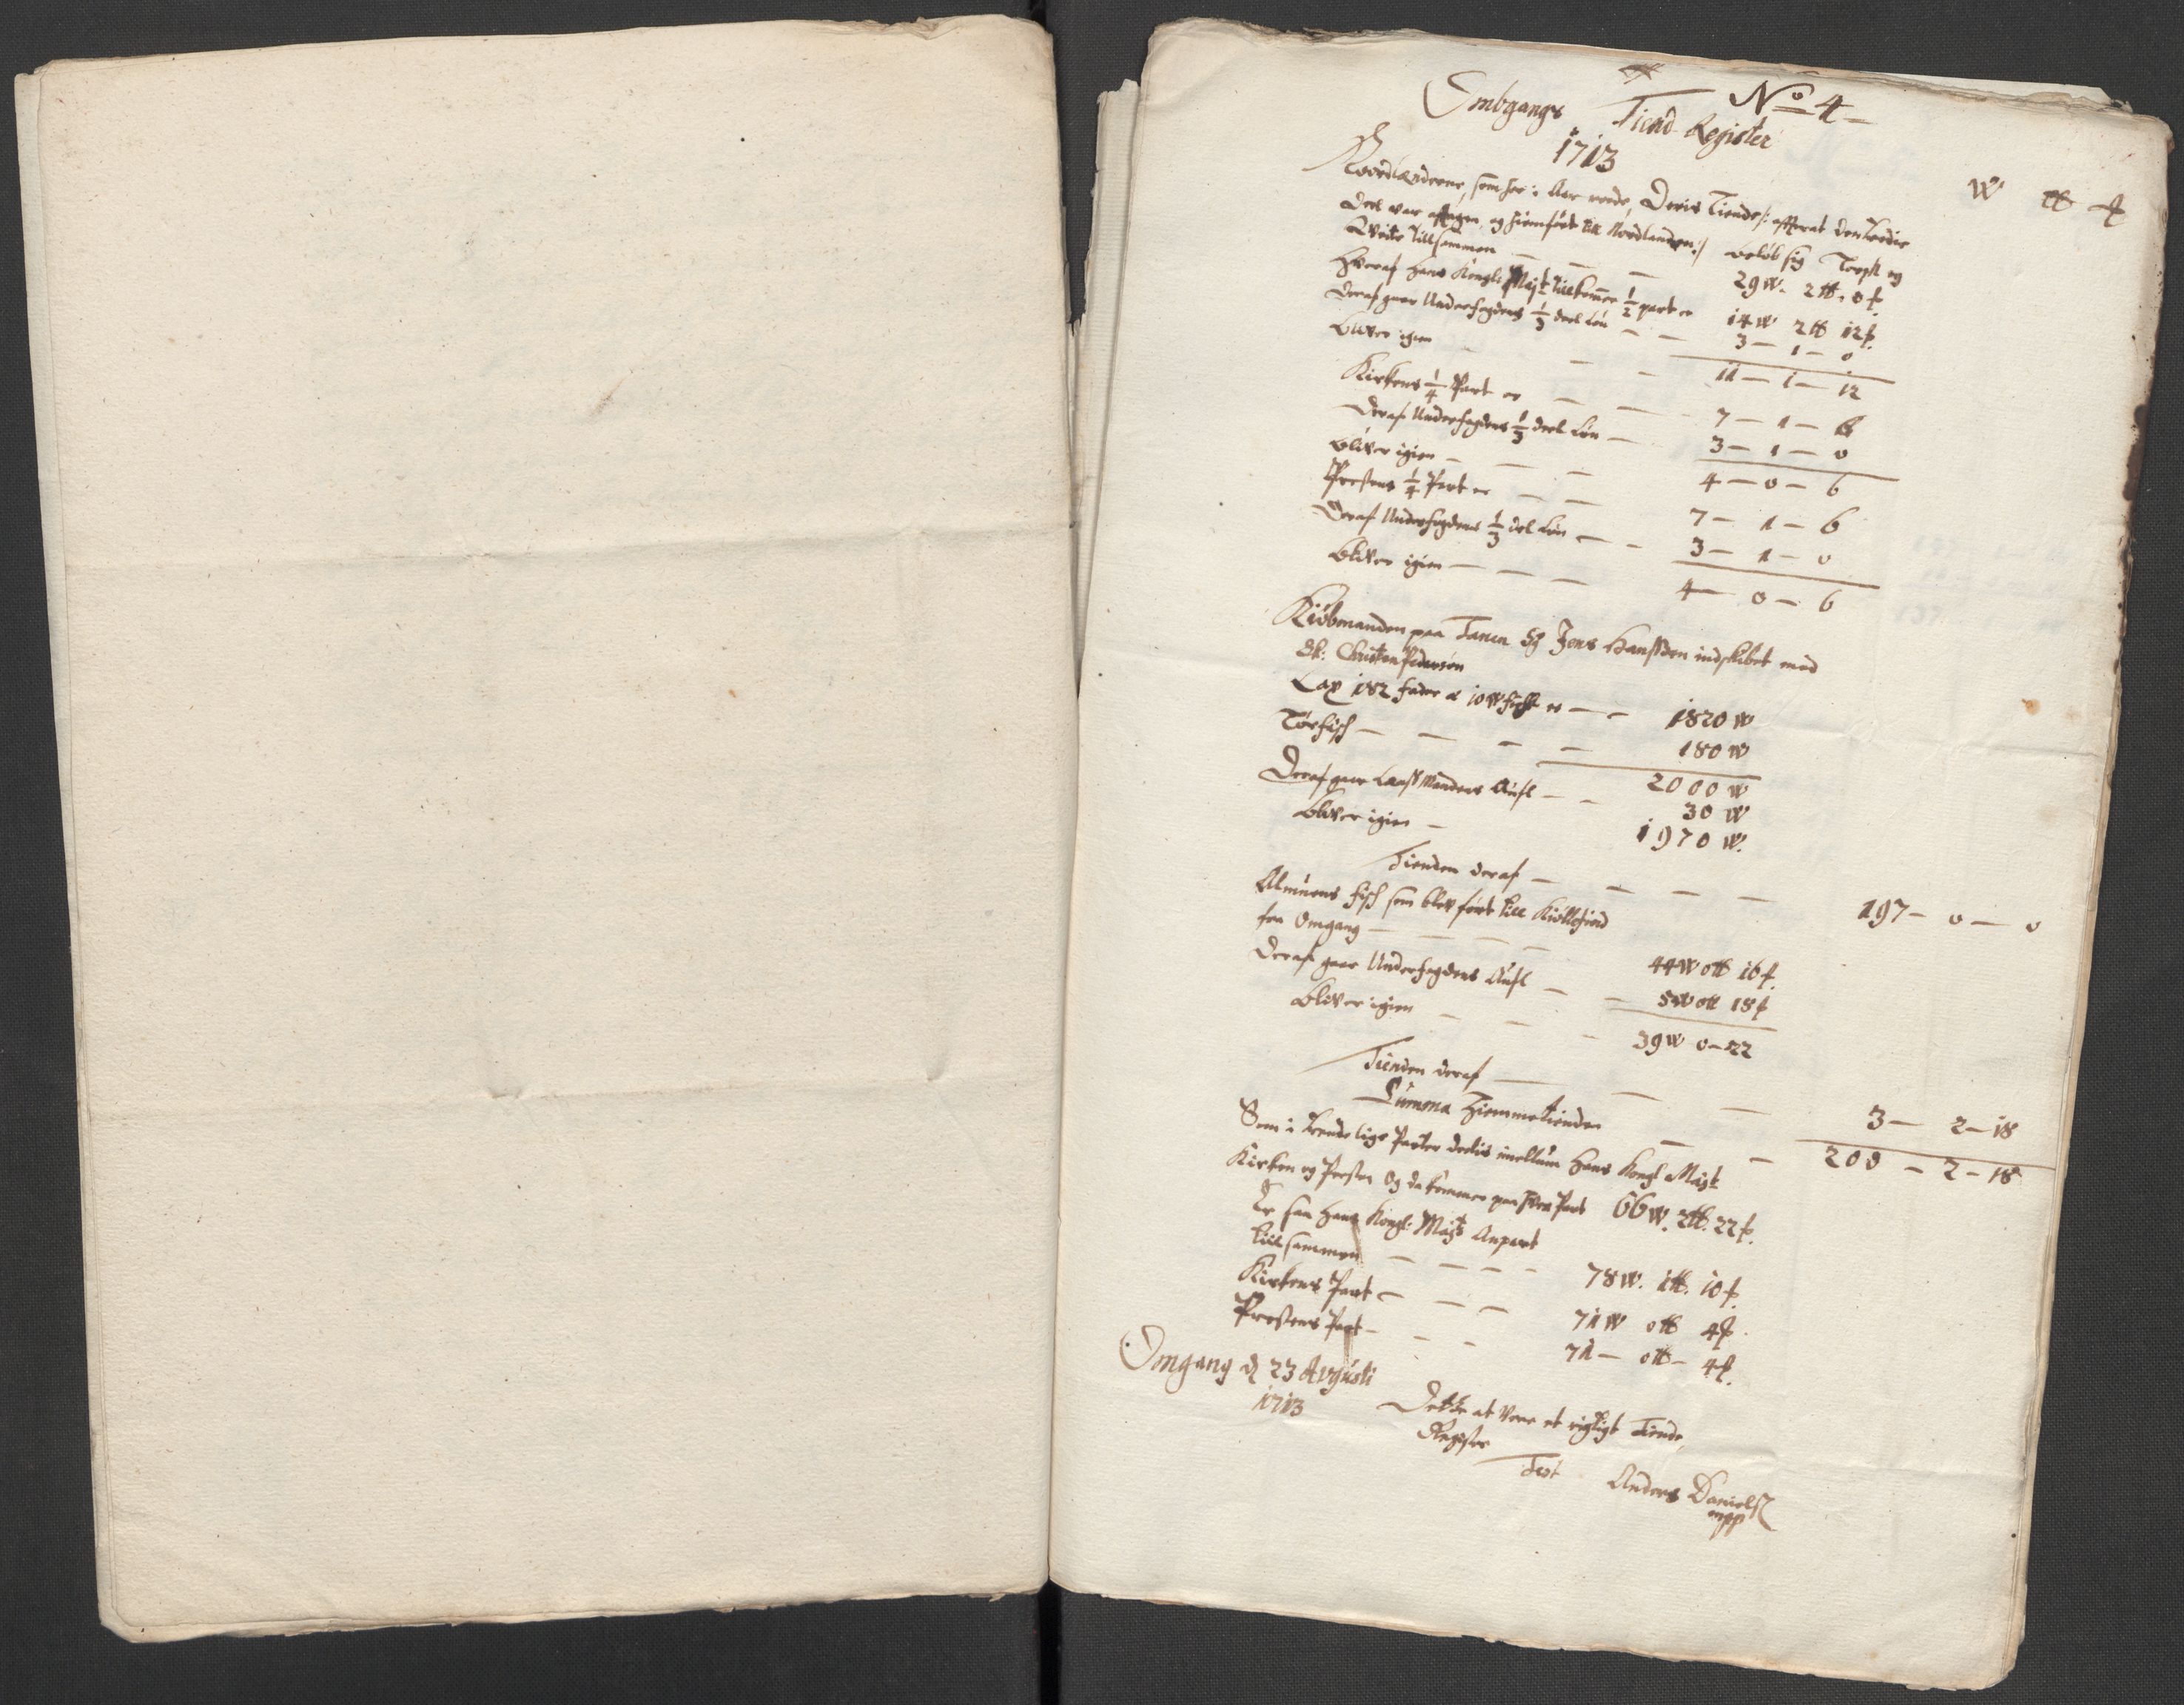 No 4
Ombgangs Tiend Register
1713
W ℔ ſ
Nordlænderne, som her i Aar rode, Deris Tiende /: efterat den tredie
Deel var aftagen og hiemført till Nordlanden :/ beløb sig Torsk og
Qveite tillsammen — — — 29 W. 2 ℔. 0 ſ.
Hvoraf Hans Kongl: Majt tillkommer 1/2 part er 14 W 2 ℔ 12 ſ.
Deraf gaar Underfogdens 1/3 deel løn — — 3 — 1 — 0
bliver igien — — — 11 — 1 — 12
Kirkens 1/4 Part er — — 7 — 1 — 6
Deraf Underfogdens 1/3 deel løn — 3 — 1 — 0
bliver igien — — — 4 — 0 — 6
Prestens 1/4 Part er — — 7 — 1 — 6
Deraf Underfogdens 1/3 del løn — — 3 — 1 — 0
bliver igien — — — 4 — 0 — 6
Kiøbmanden paa Tanen Sg Jens Hansøn indskibet med
Sk: Christen Pedersøn
Lax 182 fader a 10 W fisk er — — 1820 W
Tørfisch — — — — 180 W
2000 W
Deraf gaar Mandens — — 30 W
bliver igien — 1970 W.
Tienden deraf — — — — 197 — 0 — 0
Almuens fisch som blev ført till Kiøllefiord
fra Omgang — — — — 44 W 0 ℔ 16 ſ.
Deraf gaar Underfogdens — — 5 W 0 ℔ 18 ſ
bliver igien — — — 39 W 0 — 22
Tienden deraf — — — 3 — 2 — 18
Summa Hiemmetienden — — 200 — 2 — 18
Som i trende lige Parter deelis imellum Hans Kongl Majt
Kirken og Presten Og da kommer paa hver Part 66 W. 2 ℔. 22 ſ.
Er saa Hans Kongl: Majts Anpart
tillsammen — — — — 78 W. 1 ℔. 10 ſ.
Kirkens Part — — — 71 W 0 ℔ 4 ſ.
Prestens Part — — — 71 — 0 ℔ — 4 ſ.
Omgang d 23 Augusti
1713
Dette at være et rigtigt Tiende
Register
Test Anders Daniels
mpp